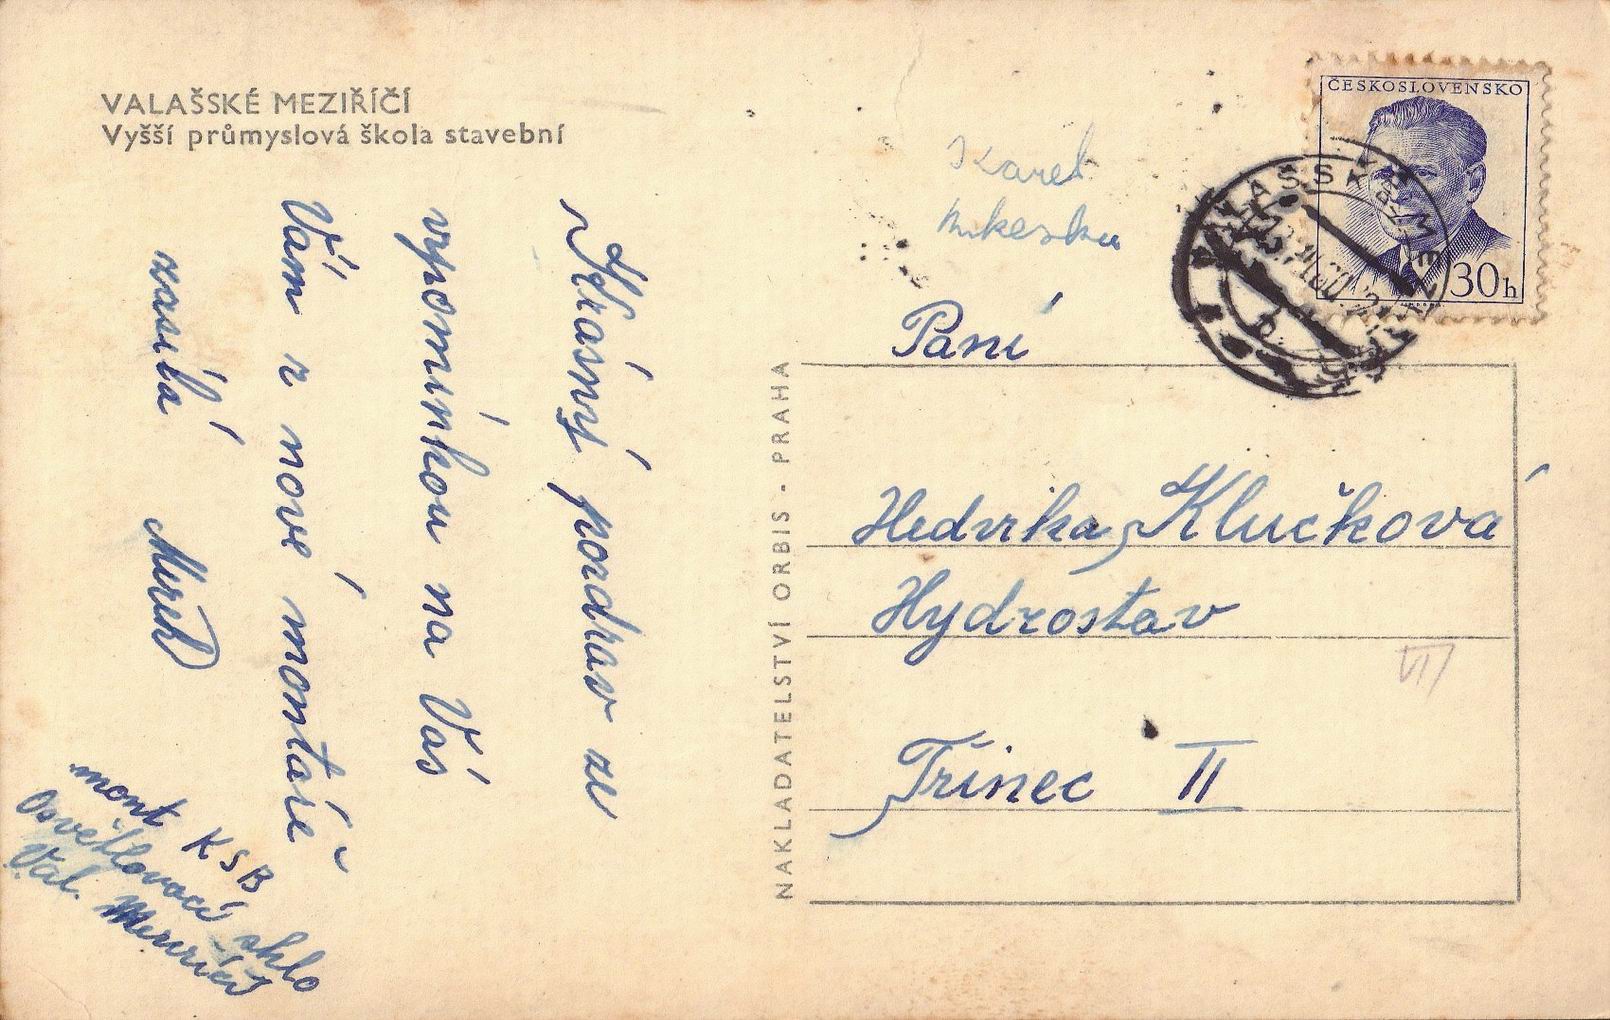 VALAŠSKÉ MEZIŘÍČÍ
Vyšší průmyslová škola stavební
Krásný pozdrav ze
vzpomínkou na Vás
Vám z nové montáže
zasílá
mont KSB
Osvětlovací sklo
Val. Meziříčí
NAKLADATELSTVÍ ORBIS - PRAHA
Karel
ČESKOSLOVENSKO
30h
VALAŠSKÉ ME
Paní
Hedvika Klučková
Hydrostav
VII
Třinec II